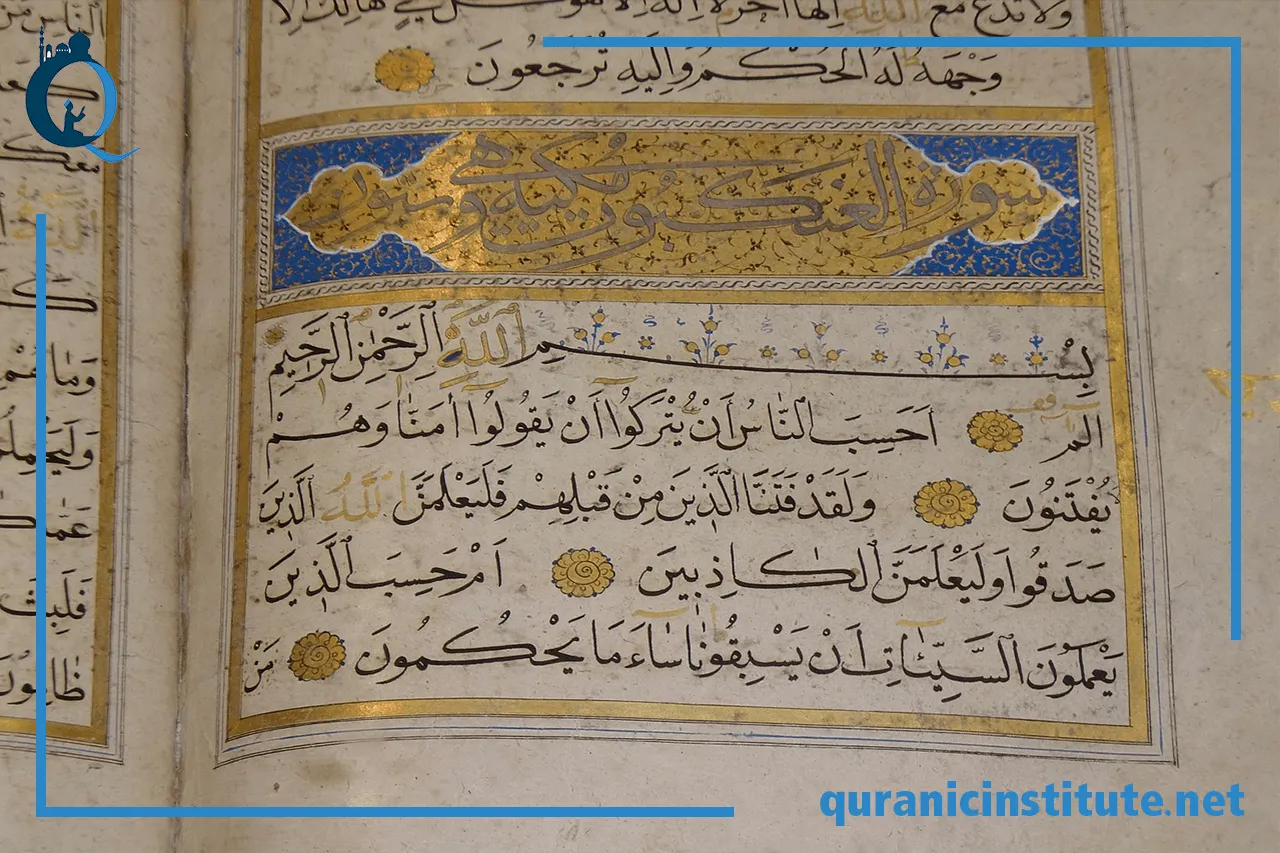 ولا تدع مع الله الها آخر لا اله الا هو كل شيء هالك الا
وَجْهَهُ لَهُ الْحُكْمُ وَاِلَيْهِ تُرْجَعُونَ
سورة العنكبوت مكية وهي وستون
بِسْمِ اللّٰهِ الرَّحْمٰنِ الرَّحِيمِ
الم اَحَسِبَ النَّاسُ اَنْ يُتْرَكُوا اَنْ يَقُولُوا اٰمَنَّا وَهُمْ
يُفْتَنُونَ وَلَقَدْ فَتَنَّا الَّذِينَ مِنْ قَبْلِهِمْ فَلَيَعْلَمَنَّ اللّٰهُ الَّذِينَ
صَدَقُوا وَلَيَعْلَمَنَّ الْكَاذِبِينَ اَمْ حَسِبَ الَّذِينَ
يَعْمَلُونَ السَّيِّـَٔاتِ اَنْ يَسْبِقُونَا سَاءَ مَا يَحْكُمُونَ مَنْ
وَمَا هُمْ
ظَالِمُونَ
quranicinstitute.net